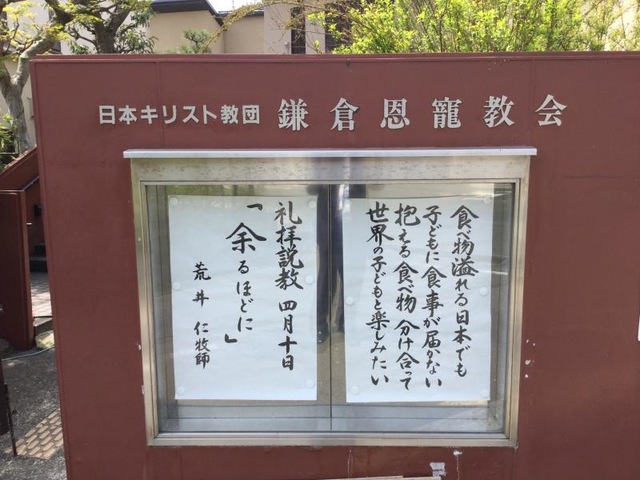 日本キリスト教団 鎌倉恩寵教会
食べ物溢れる日本でも
子どもに食事が届かない
抱える食べ物 分け合って
世界の子どもと楽しみたい
礼拝説教 四月十日
「余るほどに」
荒井 仁牧師